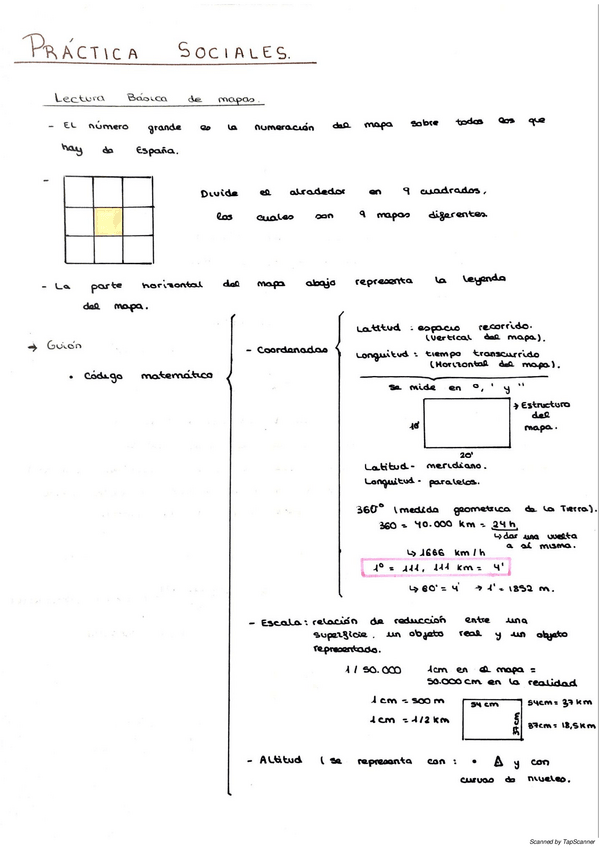 PRÁCTICA SOCIALES.
Lectura Básica de mapas.
- EL número grande es la numeración del mapa sobre todos los que
hay de España.
-
Divide el alrededor en 9 cuadrados,
los cuales son 9 mapas diferentes
- La parte horizontal del mapa abajo representa la leyenda
del mapa.
→ Guión
• Código matemático
- Coordenadas
Latitud : espacio recorrido.
(Vertical del mapa).
Longuitud : tiempo transcurrido
(Horizontal del mapa).
se mide en º, ' y "
→ Estructura
del
mapa.
10'
20'
Latitud - meridiano.
Longuitud - paralelos.
360º (medida geometrica de la Tierra).
360 = 40.000 km = 24 h
↳ dar una vuelta
a sí misma.
↳ 1666 km/h
1º = 111, 111 km = 4'
↳ 60' = 4' → 1' = 1852 m.
- Escala : relación de reducción entre una
superficie. un objeto real y un objeto
representado.
1 / 50.000 1cm en el mapa =
50.000 cm en la realidad
1 cm = 500 m
1 cm = 1/2 km
54 cm
37 cm
54cm = 37 km
37cm = 18,5km
- Altitud ( se representa con : • Δ y con
curvas de niveles.
Scanned by TapScanner